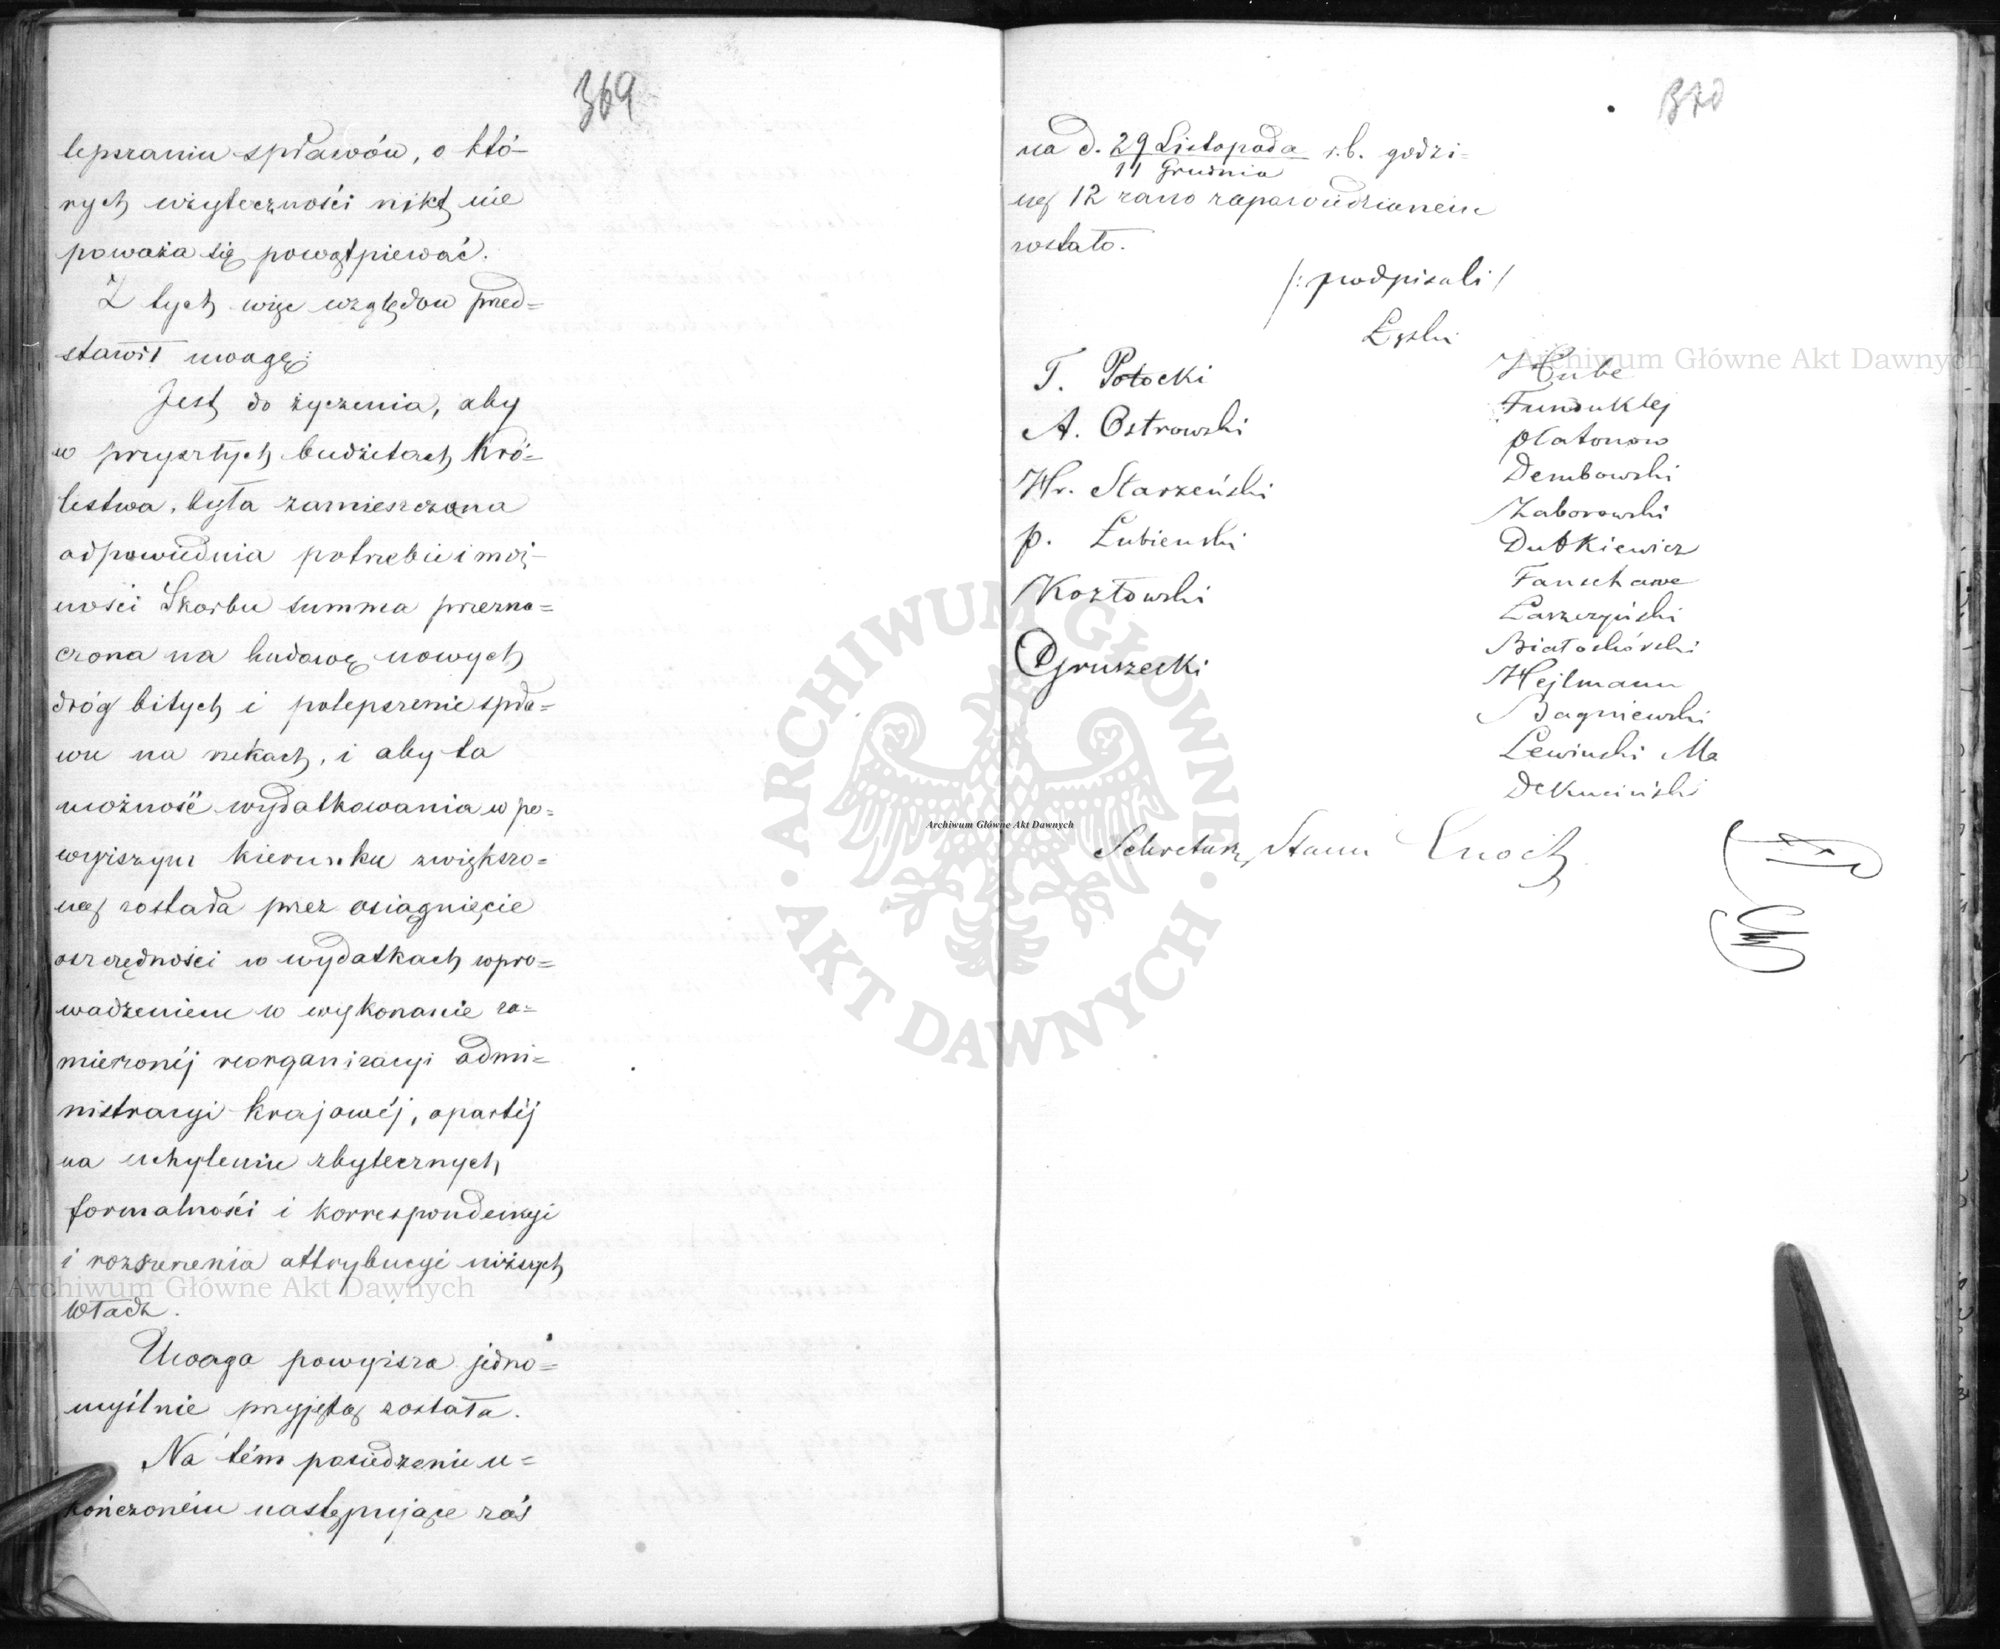 369
lepszaniu spławów, o któ-
rych użyteczności nikt nie
poważa się powątpiewać.
Z tych więc względów przed=
stawił uwagę:
Jest do życzenia, aby
w przyszłych budżetach Kró=
lestwa, była zamieszczona
odpowiednia potrzebie i moż-
ności Skarbu summa przezna=
czona na budowę nowych
dróg bitych i polepszenie spła=
wu na rzekach, i aby ta
możność wydatkowania w po=
wyższym kierunku zwiększo=
ną została przez osiągnięcie
oszczędności w wydatkach wpro=
wadzeniem w wykonanie za=
mierzonéj reorganizacyi admi=
nistracyi krajowéj, opartéj
na uchyleniu zbytecznych
formalności i korrespondencyi
i rozszerzenia attrybucyi niższych
władz.
Uwaga powyższa jedno=
myślnie przyjętą została.
Na tém posiedzenie u=
kończoném następujące zaś
370
na d. 29 Listopada r.b. godzi=
11 Grudnia
nę 12 rano zapowiedzianem
zostało.
/: podpisali /
Łęski
T. Potocki
A. Ostrowski
Hr. Starzeński
P. Łubieński
Kozłowski
Gruszecki
Hube
Funduklej
Płatonow
Dembowski
Zaborowski
Dutkiewicz
Fanschawe
Łaszczyński
Białoskórski
Hejlmann
Bagniewski
Lewiński
Dekuciński
Sekretarz Stanu Enoch
Archiwum Główne Akt Dawnych
Archiwum Główne Akt Dawnych
Archiwum Główne Akt Dawnych
ARCHIWUM GŁÓWNE AKT DAWNYCH